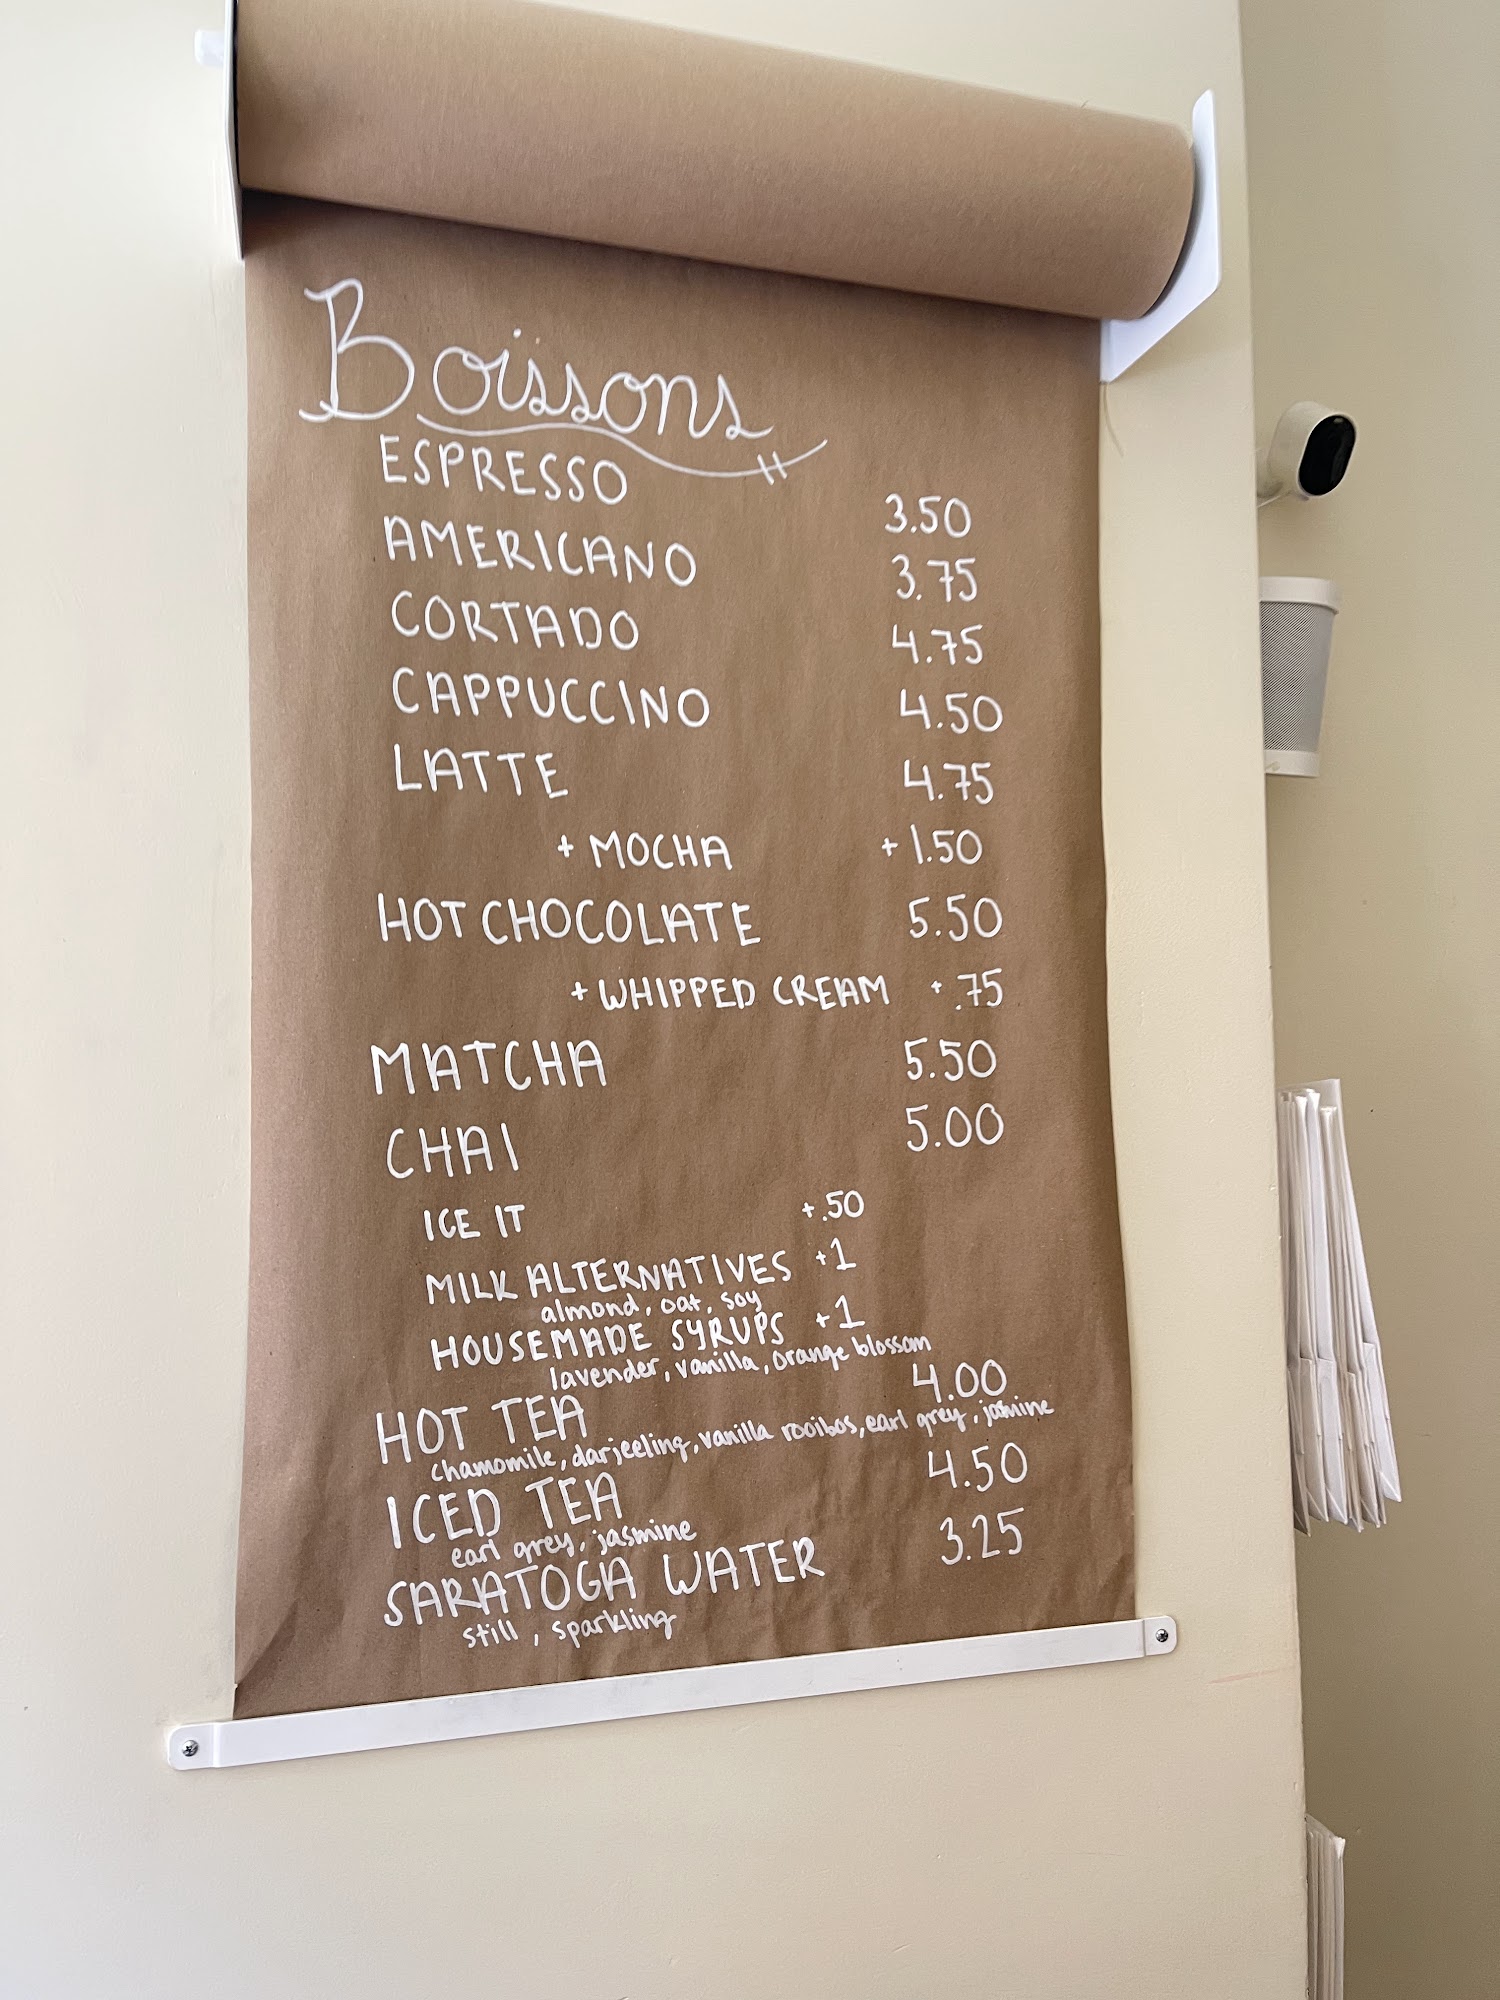 Boissons
ESPRESSO 3.50
AMERICANO 3.75
CORTADO 4.75
CAPPUCCINO 4.50
LATTE 4.75
+ MOCHA + 1.50
HOT CHOCOLATE 5.50
+ WHIPPED CREAM + .75
MATCHA 5.50
CHAI 5.00
ICE IT +.50
MILK ALTERNATIVES +1
almond, oat, soy
HOUSEMADE SYRUPS +1
lavender, vanilla, orange blossom
HOT TEA 4.00
chamomile, darjeeling, vanilla rooibos, earl grey, jasmine
ICED TEA 4.50
earl grey, jasmine
SARATOGA WATER 3.25
still, sparkling